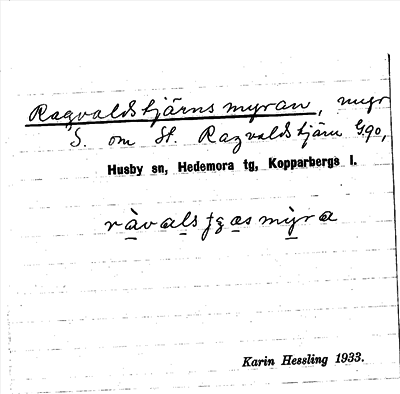 Ragvaldstjärnsmyran, myr
S. om St. Ragvaldstjärn Gqo,
Husby sn, Hedemora tg, Kopparbergs l.
ràvalsʃgæsmỳra
Karin Hessling 1933.